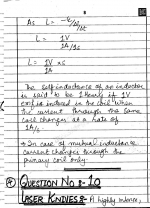 As L = -ε/ΔI/Δt
L = 1V/1A/1s
L = 1V × s/1A
The self inductance of an inductor
is said to be 1 Henry if 1V
emf is induced in the coil when
the current through the same
coil changes at a rate of
1A/s.
→ In case of mutual inductance
current changes through the
primary coil only.
QUESTION No 8-10
LASER KNIVES:- A highly intense,